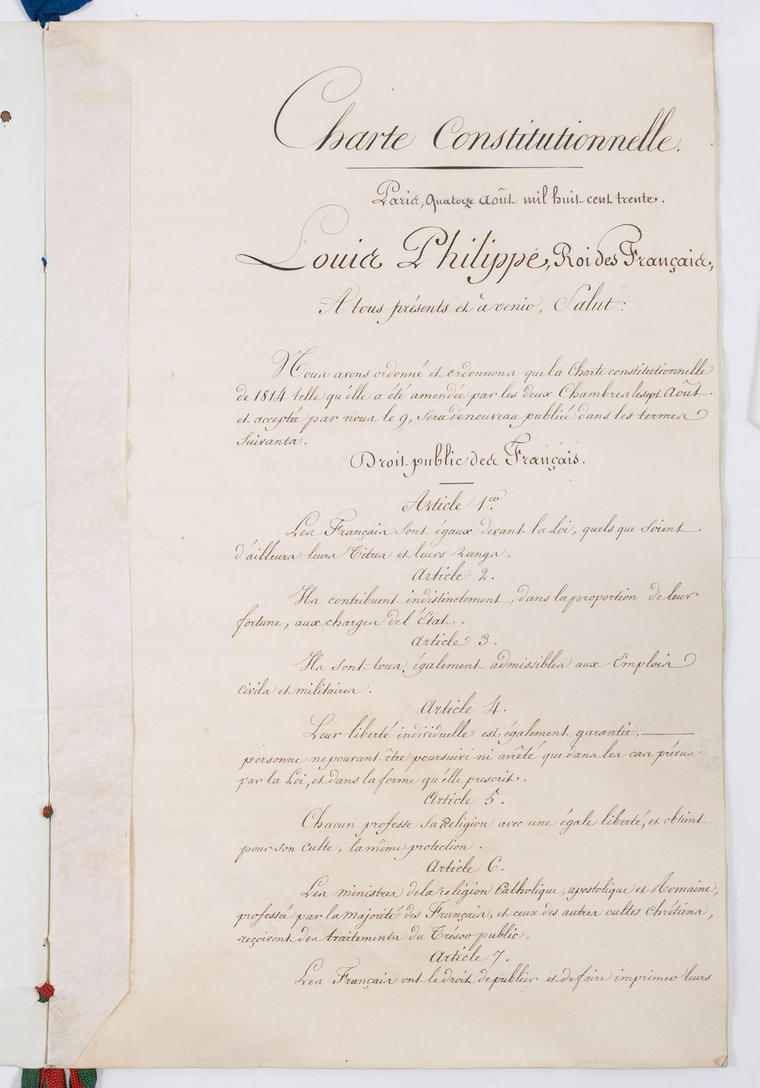 Charte Constitutionnelle.
Paris, Quatorze Août mil huit cent trente.
Louis Philippe, Roi des Français,
A tous présents et à venir, Salut:
Nous avons ordonné et ordonnons que la Charte constitutionnelle
de 1814 telle qu'elle a été amendée par les deux Chambres le sept Août
et acceptée par nous le 9, sera de nouveau publiée dans les termes
suivants.
Droit public des Français.
Article 1er.
Les Français sont égaux devant la Loi, quels que soient
d'ailleurs leurs Titres et leurs Rangs.
Article 2.
Ils contribuent indistinctement, dans la proportion de leur
fortune, aux charges de l'État.
Article 3.
Ils sont tous également admissibles aux Emplois
civils et militaires.
Article 4.
Leur liberté individuelle est également garantie;
personne ne pouvant être poursuivi ni arrêté que dans les cas prévus
par la Loi, et dans la forme qu'elle prescrit.
Article 5.
Chacun professe sa Religion avec une égale liberté, et obtient
pour son culte, la même protection.
Article 6.
Les ministres de la religion Catholique, apostolique et Romaine,
professée par la majorité des Français, et ceux des autres cultes chrétiens,
reçoivent des traitements du Trésor public.
Article 7.
Les Français ont le droit de publier et de faire imprimer leurs